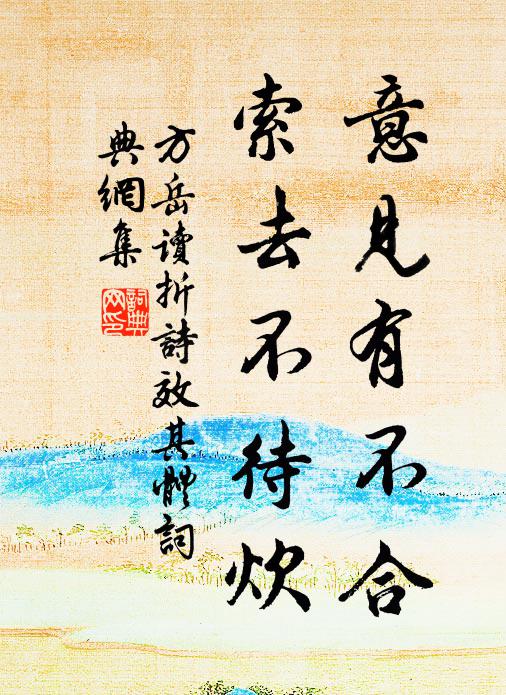 意見有不合
索去不待炊
方岳讀折詩效其體詞
典網集
詞典
网印